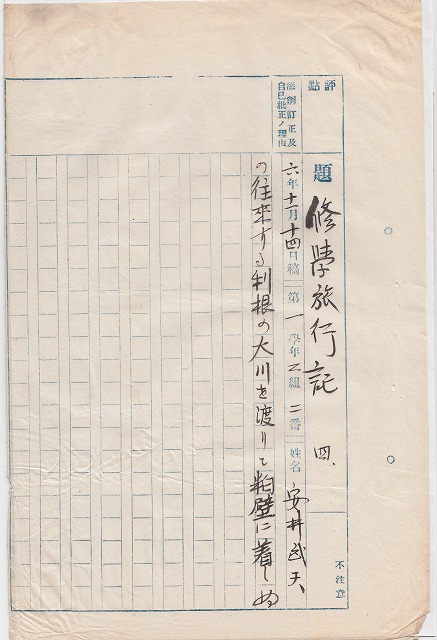 評點
題 修學旅行記 四、
不注意
添削訂正及
自己批正ノ理由
六年十一月十四日稿 第一學年乙組 二番 姓名 安井武夫
の往來する利根の大川を渡りて粕壁に着しぬ